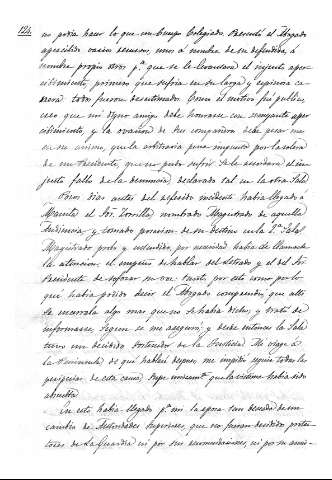 124.
no podia hacer lo que un Cuerpo Colegiado. Presentó el Abogado
apercibido varios recursos, unos a nombre de su defendido, á
nombre propio otros pª que se le levantara el injusto aper-
cibimiento, primero que sufria en su larga y espinosa ca-
rrera; todos fueron desestimados. Como el motivo fué público,
creo que mi digno amigo debe honrarse con semejante aper-
cibimiento, y la ovacion de sus compañeros debe pesar mas
en su animo, que la arbitraria pena impuesta por la
de un Presidente, que no pudo sufrir se le el in-
justo fallo de la denuncia declarado tal en la otra Sala.
Pocos dias antes del referido incidente habia llegado á
Manila el Sor. Zorrilla nombrado Magistrado de aquella
Audiencia y tomado posesion de su destino en la 2ª Sala.
Magistrado probo y entendido, por necesidad habia de llamarle
la atencion el empeño de hablar del Letrado y el del Sor
Presidente de sofocar su voz. Tanto por esto como por lo
que habia podido decir el Abogado comprendió que alli
se encerraba algo mas que no se habia dicho, y trató de
informarse, segun se me aseguró, y desde entonces la Sala
tuvo un decidido sostenedor de la Justicia. Mi viage á
la Peninsula de que hablaré despues, me impidió seguir todas las
peripecias de esta causa. Supe unicamte que la víctima habia sido
absuelta.
En esto habia llegado pª mi la epoca tan deseada de un
cambio de Autoridades Superiores, que no fueran decididos protec-
tores de La Guardia ni por sus recomendaciones, ni por su amis-